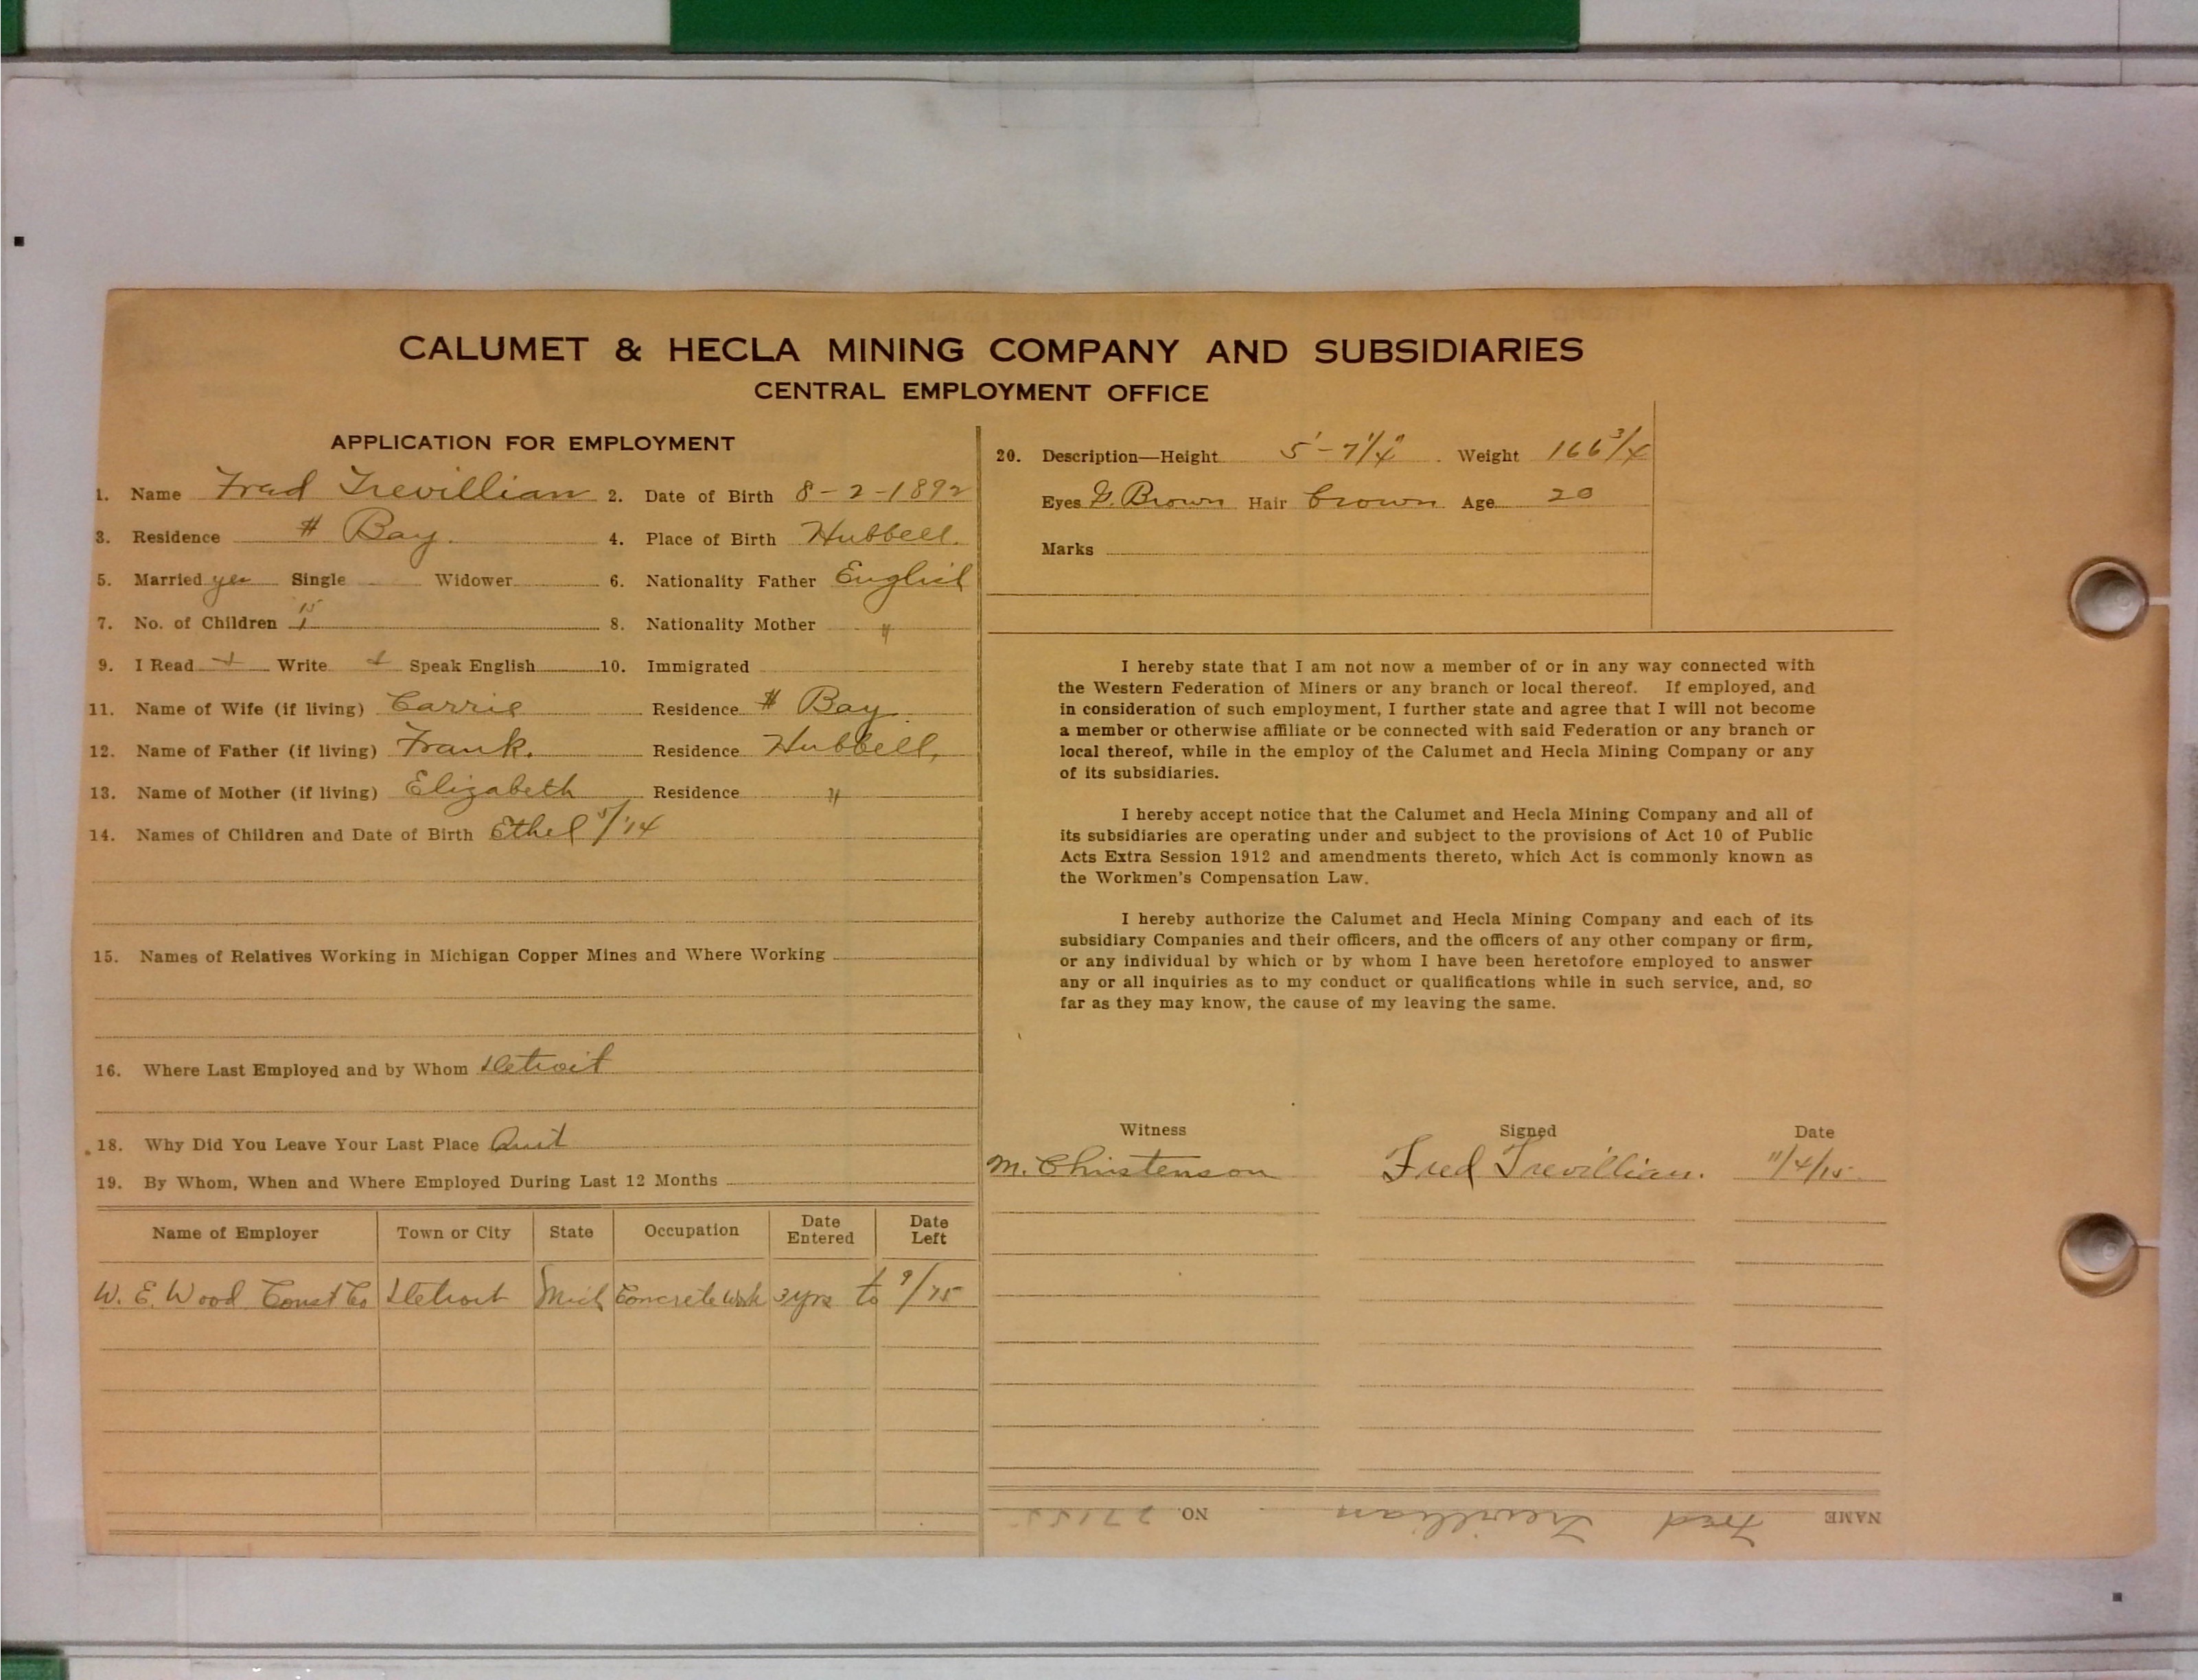 CALUMET & HECLA MINING COMPANY AND SUBSIDIARIES
CENTRAL EMPLOYMENT OFFICE
APPLICATION FOR EMPLOYMENT
1. Name Fred Trevillian 2. Date of Birth 8-2-1892
3. Residence # Bay. 4. Place of Birth Hubbell.
5. Married yes Single Widower 6. Nationality Father English
7. No. of Children 1 8. Nationality Mother "
9. I Read Write Speak English 10. Immigrated
11. Name of Wife (if living) Carrie Residence # Bay.
12. Name of Father (if living) Frank. Residence Hubbell,
13. Name of Mother (if living) Elizabeth Residence "
14. Names of Children and Date of Birth Ethel 5/'14
15. Names of Relatives Working in Michigan Copper Mines and Where Working
16. Where Last Employed and by Whom Detroit
18. Why Did You Leave Your Last Place Quit
19. By Whom, When and Where Employed During Last 12 Months
Name of Employer Town or City State Occupation Date Entered Date Left
W. E. Wood Const Co Detroit Mich Concrete Work yrs to 9/15
20. Description—Height 5'-7 1/4" Weight 166 3/4
Eyes Brown Hair brown Age 20
Marks
I hereby state that I am not now a member of or in any way connected with
the Western Federation of Miners or any branch or local thereof. If employed, and
in consideration of such employment, I further state and agree that I will not become
a member or otherwise affiliate or be connected with said Federation or any branch or
local thereof, while in the employ of the Calumet and Hecla Mining Company or any
of its subsidiaries.
I hereby accept notice that the Calumet and Hecla Mining Company and all of
its subsidiaries are operating under and subject to the provisions of Act 10 of Public
Acts Extra Session 1912 and amendments thereto, which Act is commonly known as
the Workmen's Compensation Law.
I hereby authorize the Calumet and Hecla Mining Company and each of its
subsidiary Companies and their officers, and the officers of any other company or firm,
or any individual by which or by whom I have been heretofore employed to answer
any or all inquiries as to my conduct or qualifications while in such service, and, so
far as they may know, the cause of my leaving the same.
Witness Signed Date
M. Christenson Fred Trevillian. 11/4/15.
NAME Fred Trevillian NO. 27155